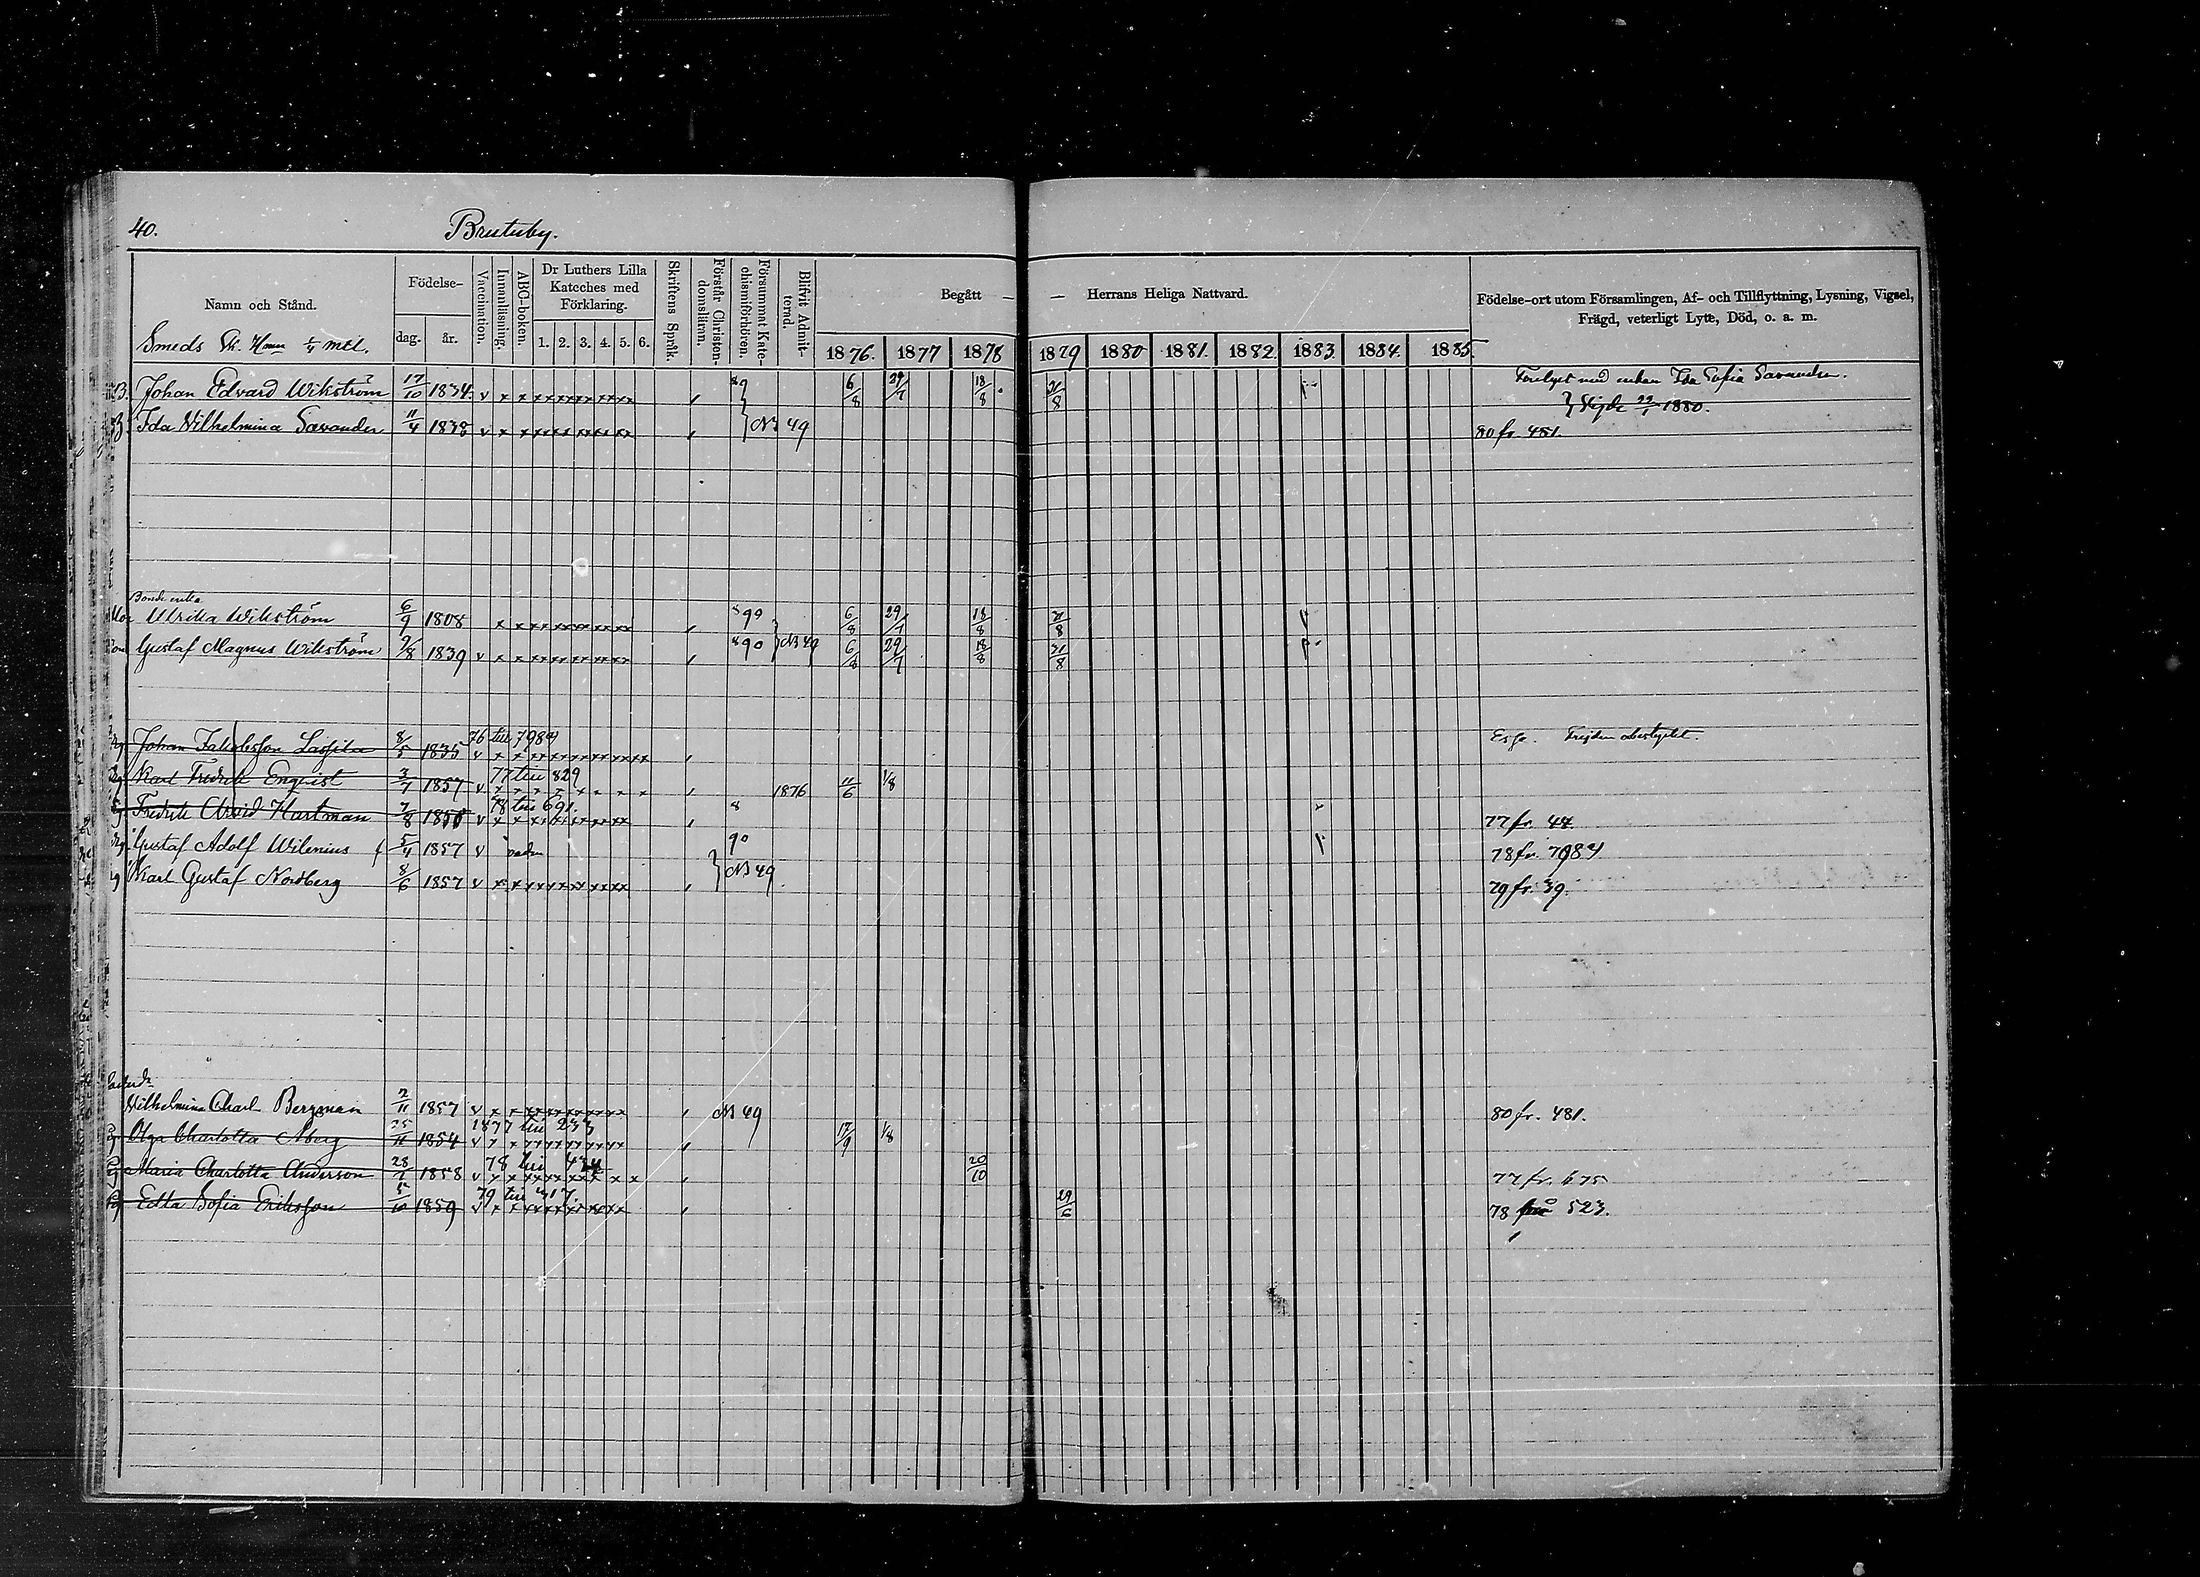 40. Brutuby.
Namn och Stånd.
Födelse-
dag. år.
Vaccination.
Innanläsning.
ABC-boken.
Dr Luthers Lilla
Kateches med
Förklaring.
1. 2. 3. 4. 5. 6.
Skriftens Språk.
Förstår Christen-
domslärnn.
Försummat Kate-
chismiförhören.
Blifvit Admit-
terad.
Begått — — Herrans Heliga Nattvard.
1876. 1877 1878 1879 1880 1881. 1882. 1883. 1884. 1885.
Födelse-ort utom Församlingen, Af- och Tillflyttning, Lysning, Vigsel,
Frägd, veterligt Lyte, Död, o. a. m.
Smeds 1/4 mtl.
Johan Edvard Wikström 17/10 1834. v x x xxxxxxxxxx 9 6/8 29/7 18/8 31/8 med enkan Ida Sofia Savander.
22/1 1880.
Ida Wilhelmina Savander 11/4 1838 v x x xxxxxxxxxx NB 49 80 fr. 481.
Bonde enka
Mor Ulrika Wikström 6/9 1808 x x xxxxxxxxxx 99 6/8 29/7 18/8 31/8
Gustaf Magnus Wikström 9/8 1839 v x x xxxxxxxxxx 90 NB 49 6/8 29/7 18/8 31/8
Johan Jakobsson Laspila 8/5 1835 76 till 798 v x x xxxxxxxxxx Esbo. Frejden obestyrkt.
Karl Fredrik Enqvist 3/7 1857 77 till 829 v x x x x x x x x 1876 11/6 1/8
Fredrik Arvid Hartman 7/8 1850 78 till 691. v x x xxxxxxxxxx 8 77 fr. 44.
Gustaf Adolf Wilenius f 5/4 1857 v 90 78 fr. 798
Karl Gustaf Nordberg 8/6 1857 v x x xxxxxxxxxx NB 49 79 fr. 39.
Wilhelmina Charl. Bergman 2/11 1857 v x x xxxxxxxxxx NB 49 80 fr. 481.
Olga Charlotta Åberg 25/11 1854 1877 till 233 v x x xxxxxxxxxx 17/9 1/8
Maria Charlotta Anderson 28/7 1858 78 till 434 v x x xxxxxxxx x x 20/10 77 fr. 675
Edla Sofia Eriksson 5/10 1859 79 till 317. v x x xxxxxxxxxx 29/6 78 från 523.